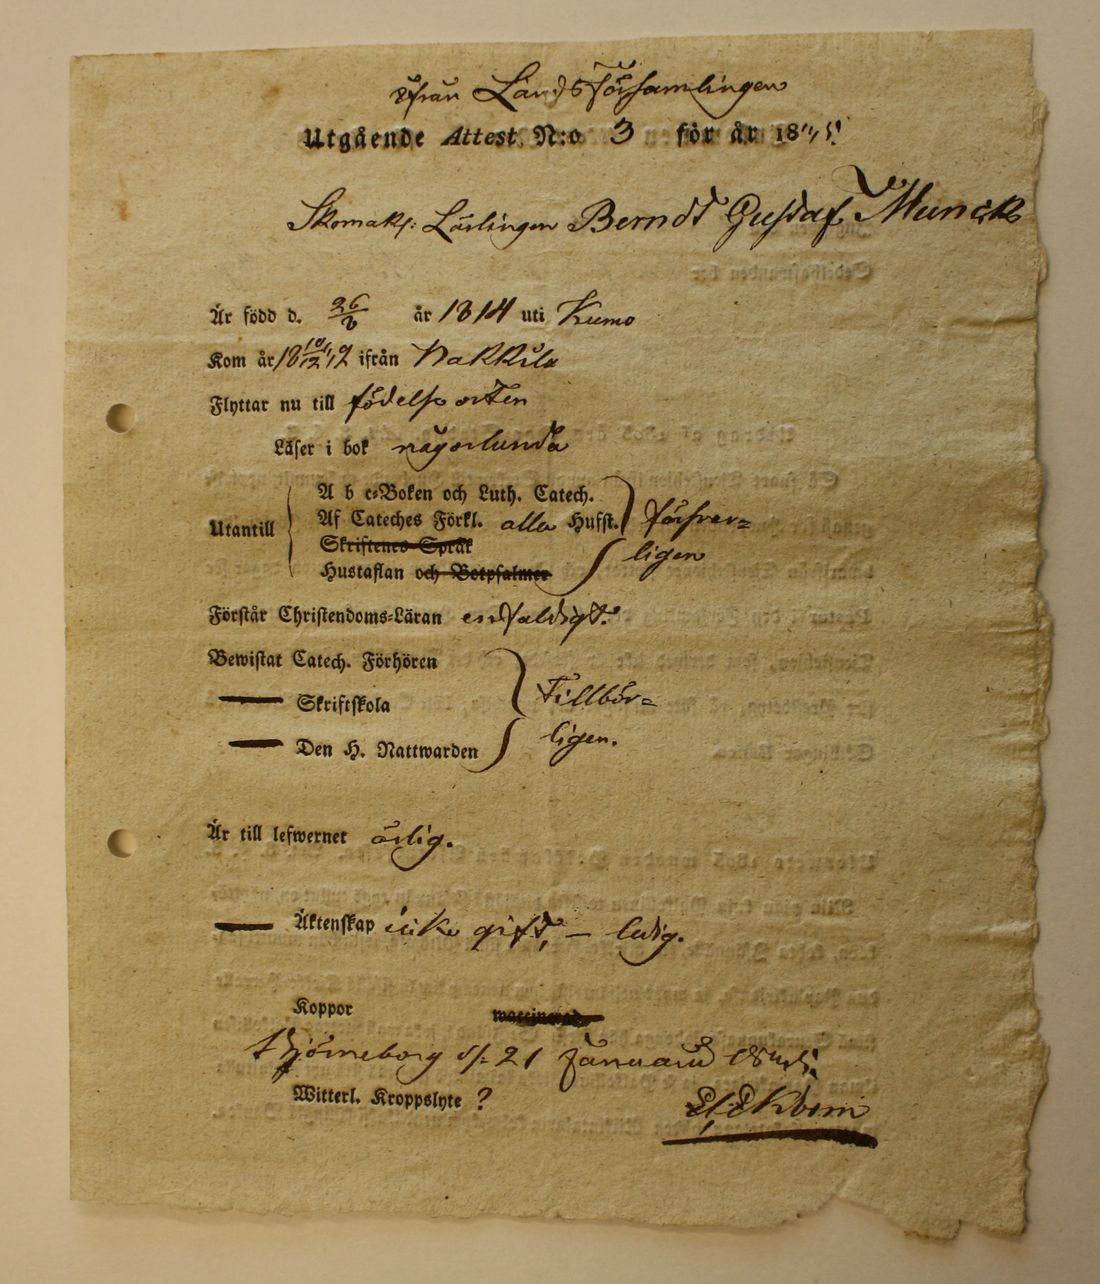 ifrån LandsFörsamlingen
Utgående Attest N:o 3 för år 18
Skomak: Lärlingen Berndt Gustaf Munck
Är född d. 26/8 år 1814 uti Kumo
Kom år 18 ifrån Nakkila
Flyttar nu till födelse orten
Läser i bok någorlunda
Utantill
A b c-Boken och Luth. Catech.
Af Cateches Förkl. alla Husst. försvar=
Skriftenes Språk
ligen
Hustaflan och Botpsalmer
Förstår Christendoms-Läran enfaldigt.
Bewistat Catech. Förhören
Skriftskola Tillbör=
Den H. Nattwarden ligen.
Är till lefwernet ärlig.
Äktenskap icke gift, – ledig.
Koppor waccinerad
Björneborg d. 21 Januarii
Witterl. Kroppslyte ?